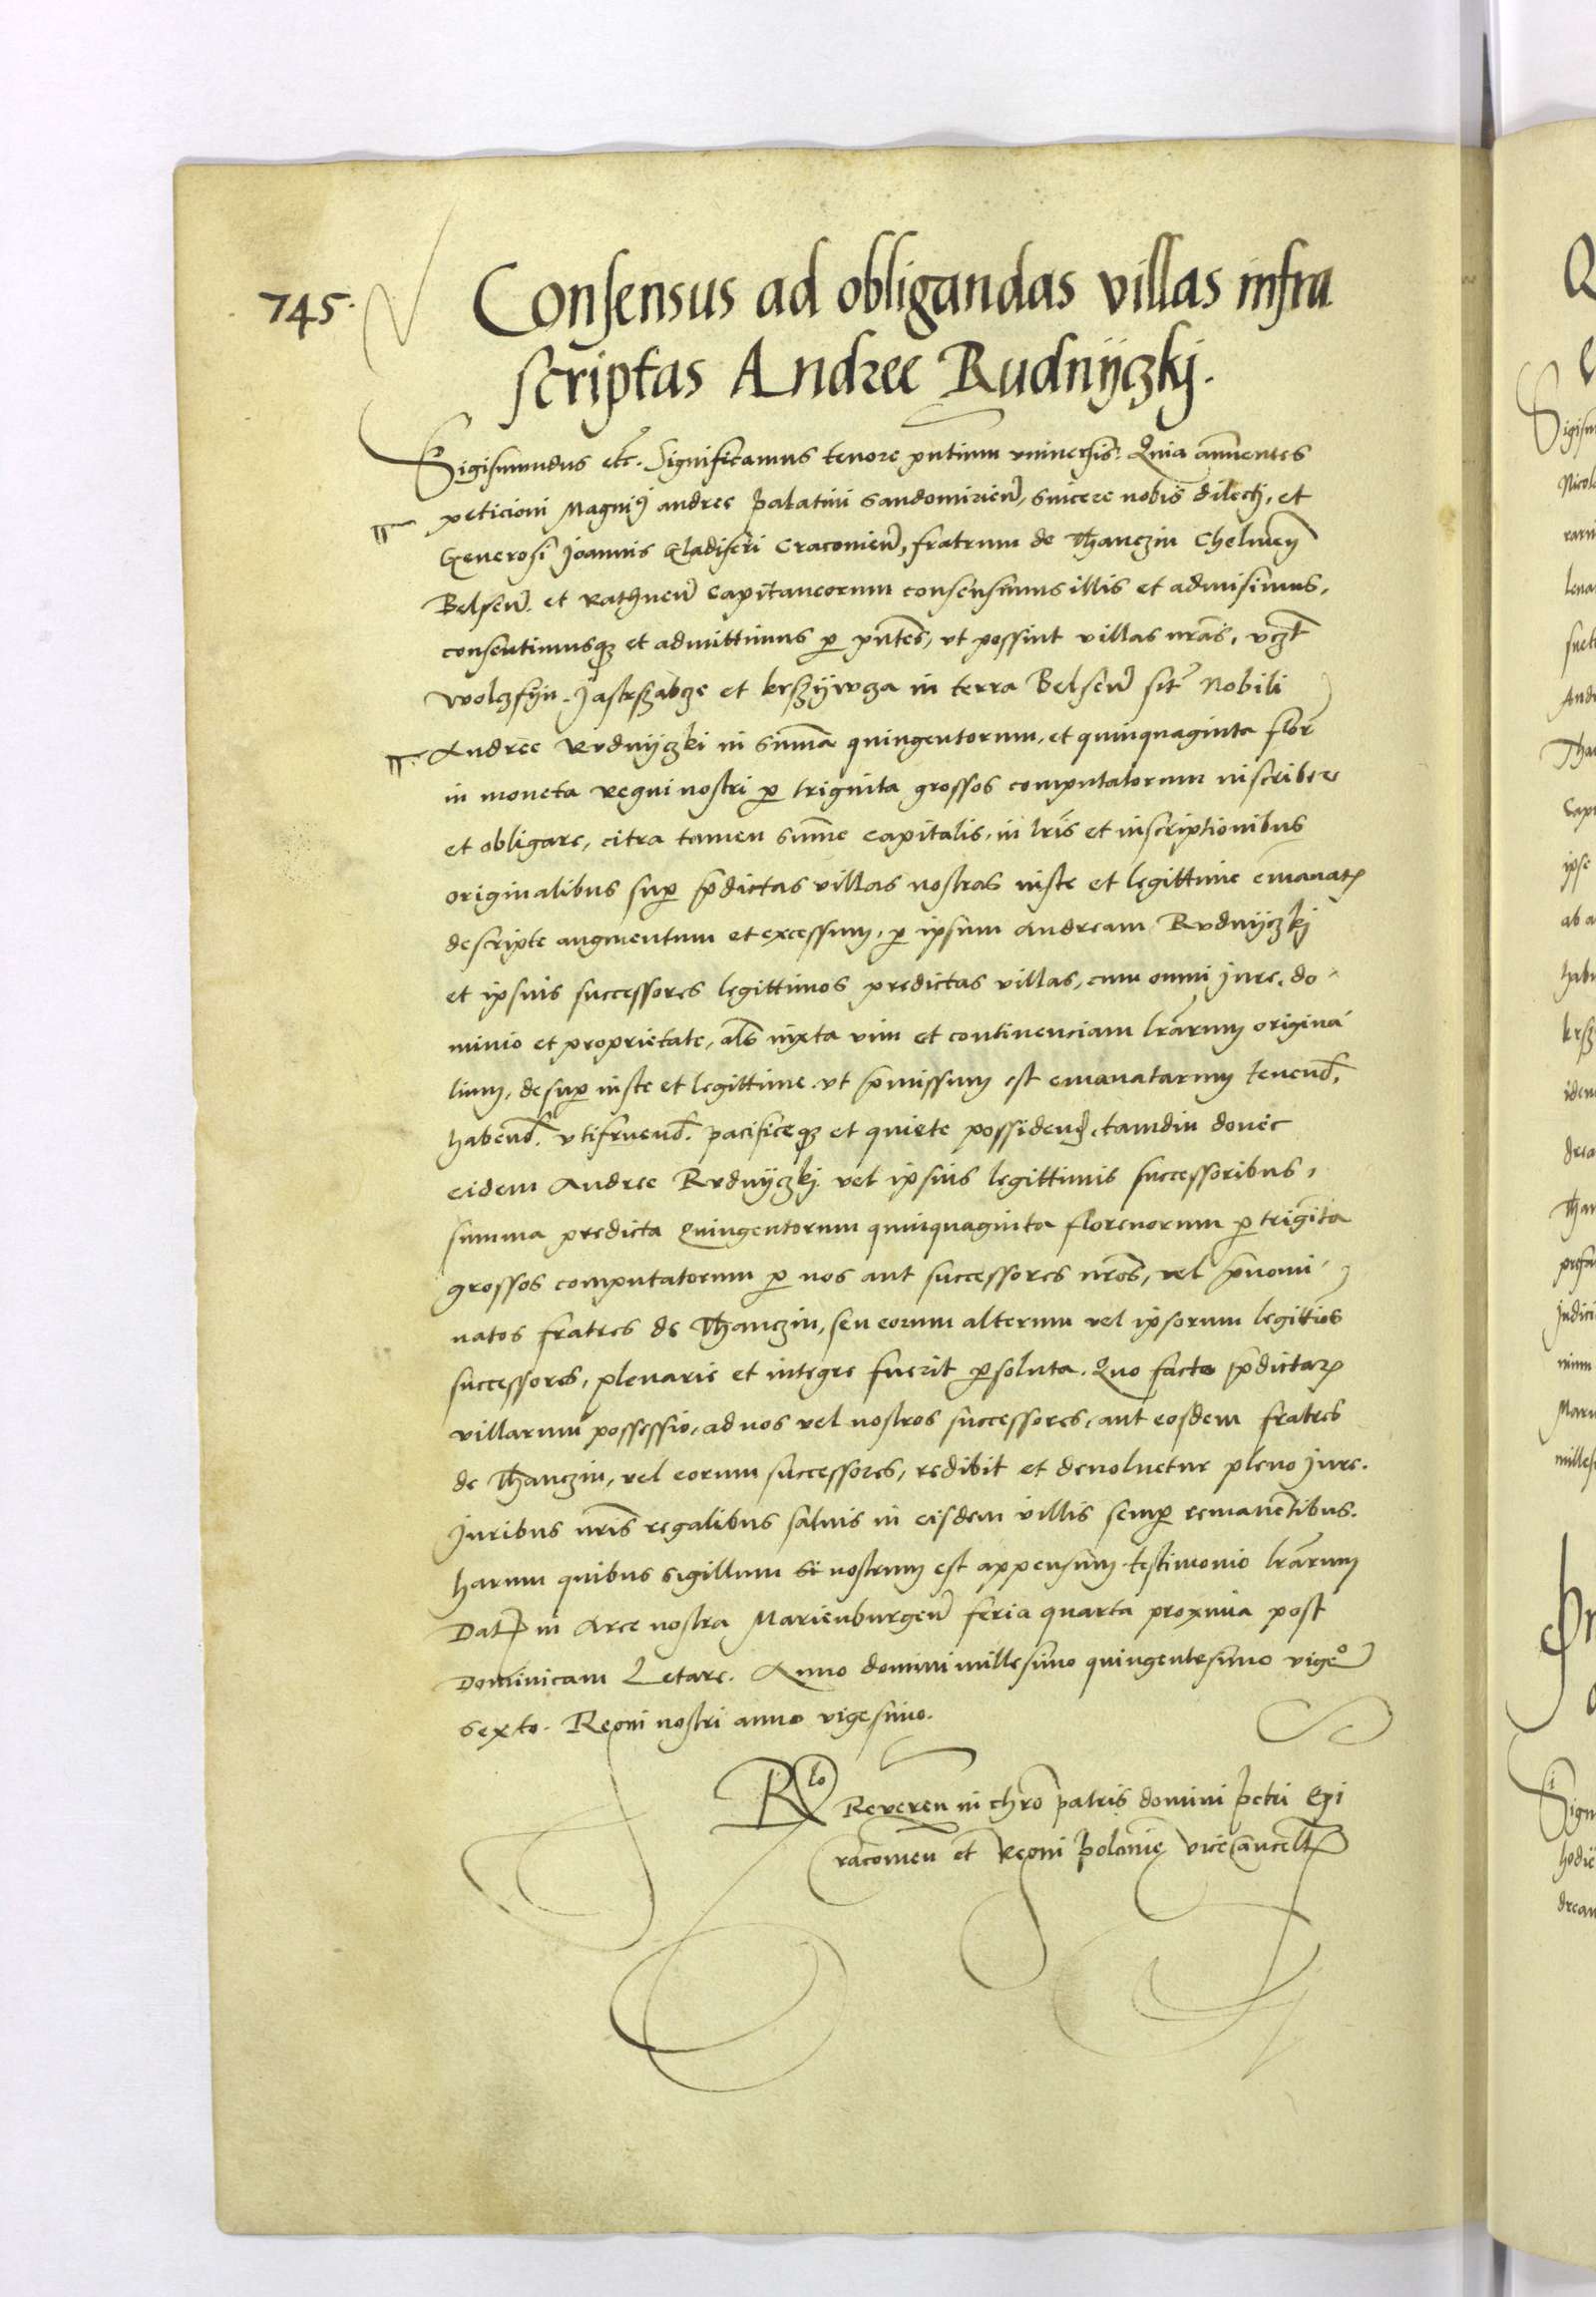 745.
Consensus ad obligandas villas infra
scriptas Andree Rudnÿczkj.
Sigismundus etc. Significamus tenore pñtium vniuersis. Quia annuentes
peticioni Magnici andree palatini Sandomirień, sincere nobis dilecti, et
Generosi Joannis Gladiferi Cracovień, fratrum de Thanczin Chelmeñ
Belseń. et Rathneń Capitaneorum consensimus illis et admisimus,
consentimusqȝ et admittimus p pñtes, vt possint villas nrãs, vczt
wolczsÿn. Jastrzabcze et krzÿwcza in terra Belseń sit̃ Nobili
Andree Rvdnÿczki in sum̃a quingentorum, et quinquaginta flor̃
in moneta regni nostri p triginta grossos computatorum inscribere
et obligare, citra tamen sum̃e capitalis, in lr̃is et inscriptionibus
originalibus sup p̃dictas villas nostras iuste et legittime emanatꝝ
descripte augmentum et excessum, p ipsum andream Rvdnÿczkj
et ipsius successores legittimos predictas villas, cum omni jure, do-
minio et proprietate, als iuxta vim et continenciam lr̃arum origina
lium, desup iuste et legittime vt p̃missum est emanatarum tenend̃,
habend̃. vtifruend̃. pacificeqȝ et quiete possidend̃. tamdiu donec
eidem Andree Rvdnÿczkj vel ipsius legittimis successoribus,
summa predicta Quingentorum quinquaginta florenorum p triginta
grossos computatorum p nos aut successores nr̃os, vel p̃nomi-
natos fratres de Thanczin, seu eorum alterum vel ipsorum legittios
successores, plenarie et integre fuerit psoluta. Quo facto p̃dictaꝝ
villarum possessio, ad nos vel nostros successores, aut eosdem fratres
de Thanczin, vel eorum successores, redibit et deuoluetur pleno jure.
Juribus nr̃is regalibus saluis in eisdem villis semp remanẽtibus.
Harum quibus sigillum nostrum est appensum testimonio lr̃arum
Datꝭ in Arce nostra Marienburgeń feria quarta proxima post
Dominicam Letare. Anno domini millesimo quingentesimo vigeo
sexto. Regni nostri anno vigesimo.
Rlo Reveren in chro patris domini petri Epi
Cracovień et Regni poloniẹ vicecancellꝭ